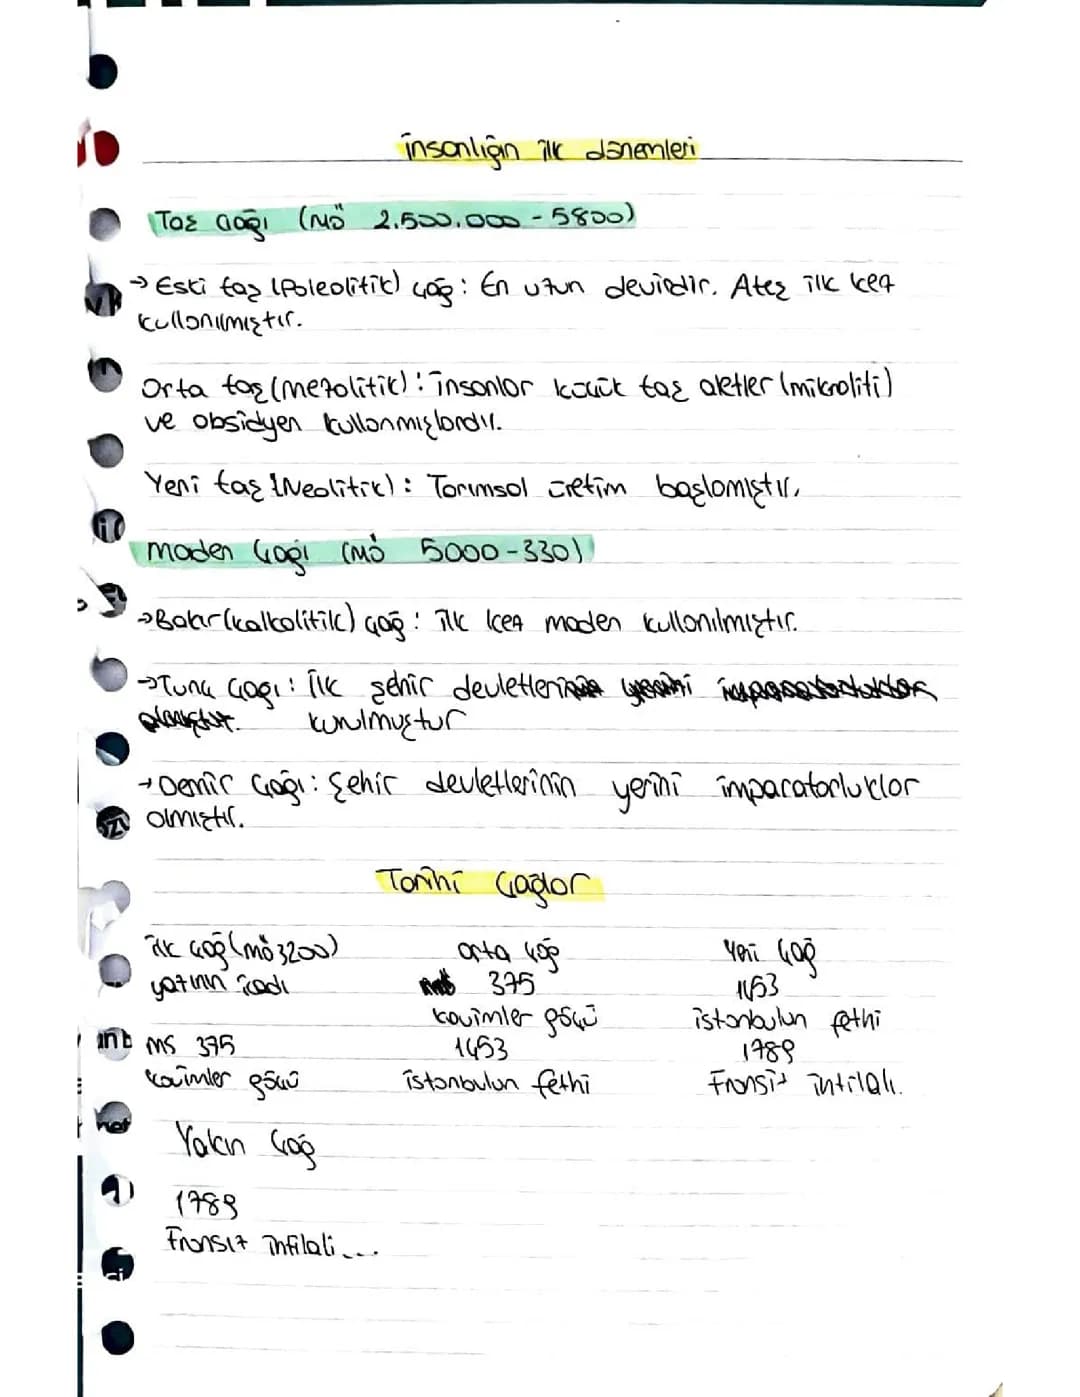 insanlığın ilk dönemleri
Taş Çağı (MÖ 2.500.000 - 5800)
→ Eski taş (Paleolitik) çağ : En uzun devirdir. Ateş ilk kez
kullanılmıştır.
Orta taş (mezolitik) : insanlar küçük taş aletler (mikroliti)
ve obsidyen kullanmışlardır.
Yeni taş (Neolitik) : Tarımsal üretim başlamıştır.
maden Çağı (MÖ 5000-330)
→ Bakır (kalkolitik) çağ : ilk kez maden kullanılmıştır.
→ Tunç Çağı : ilk şehir devletleri
kurulmuştur
→ Demir Çağı : Şehir devletlerinin yerini imparatorluklar
almıştır.
Tarihi Çağlar
ilk çağ (mö 3200) orta çağ Yeni Çağ
yazının icadı 375 1453
kavimler göçü istanbulun fethi
MS 375 1453 1789
kavimler göçü istanbulun fethi Fransız intilalı.
Yakın Çağ
1789
Fransız infilali...